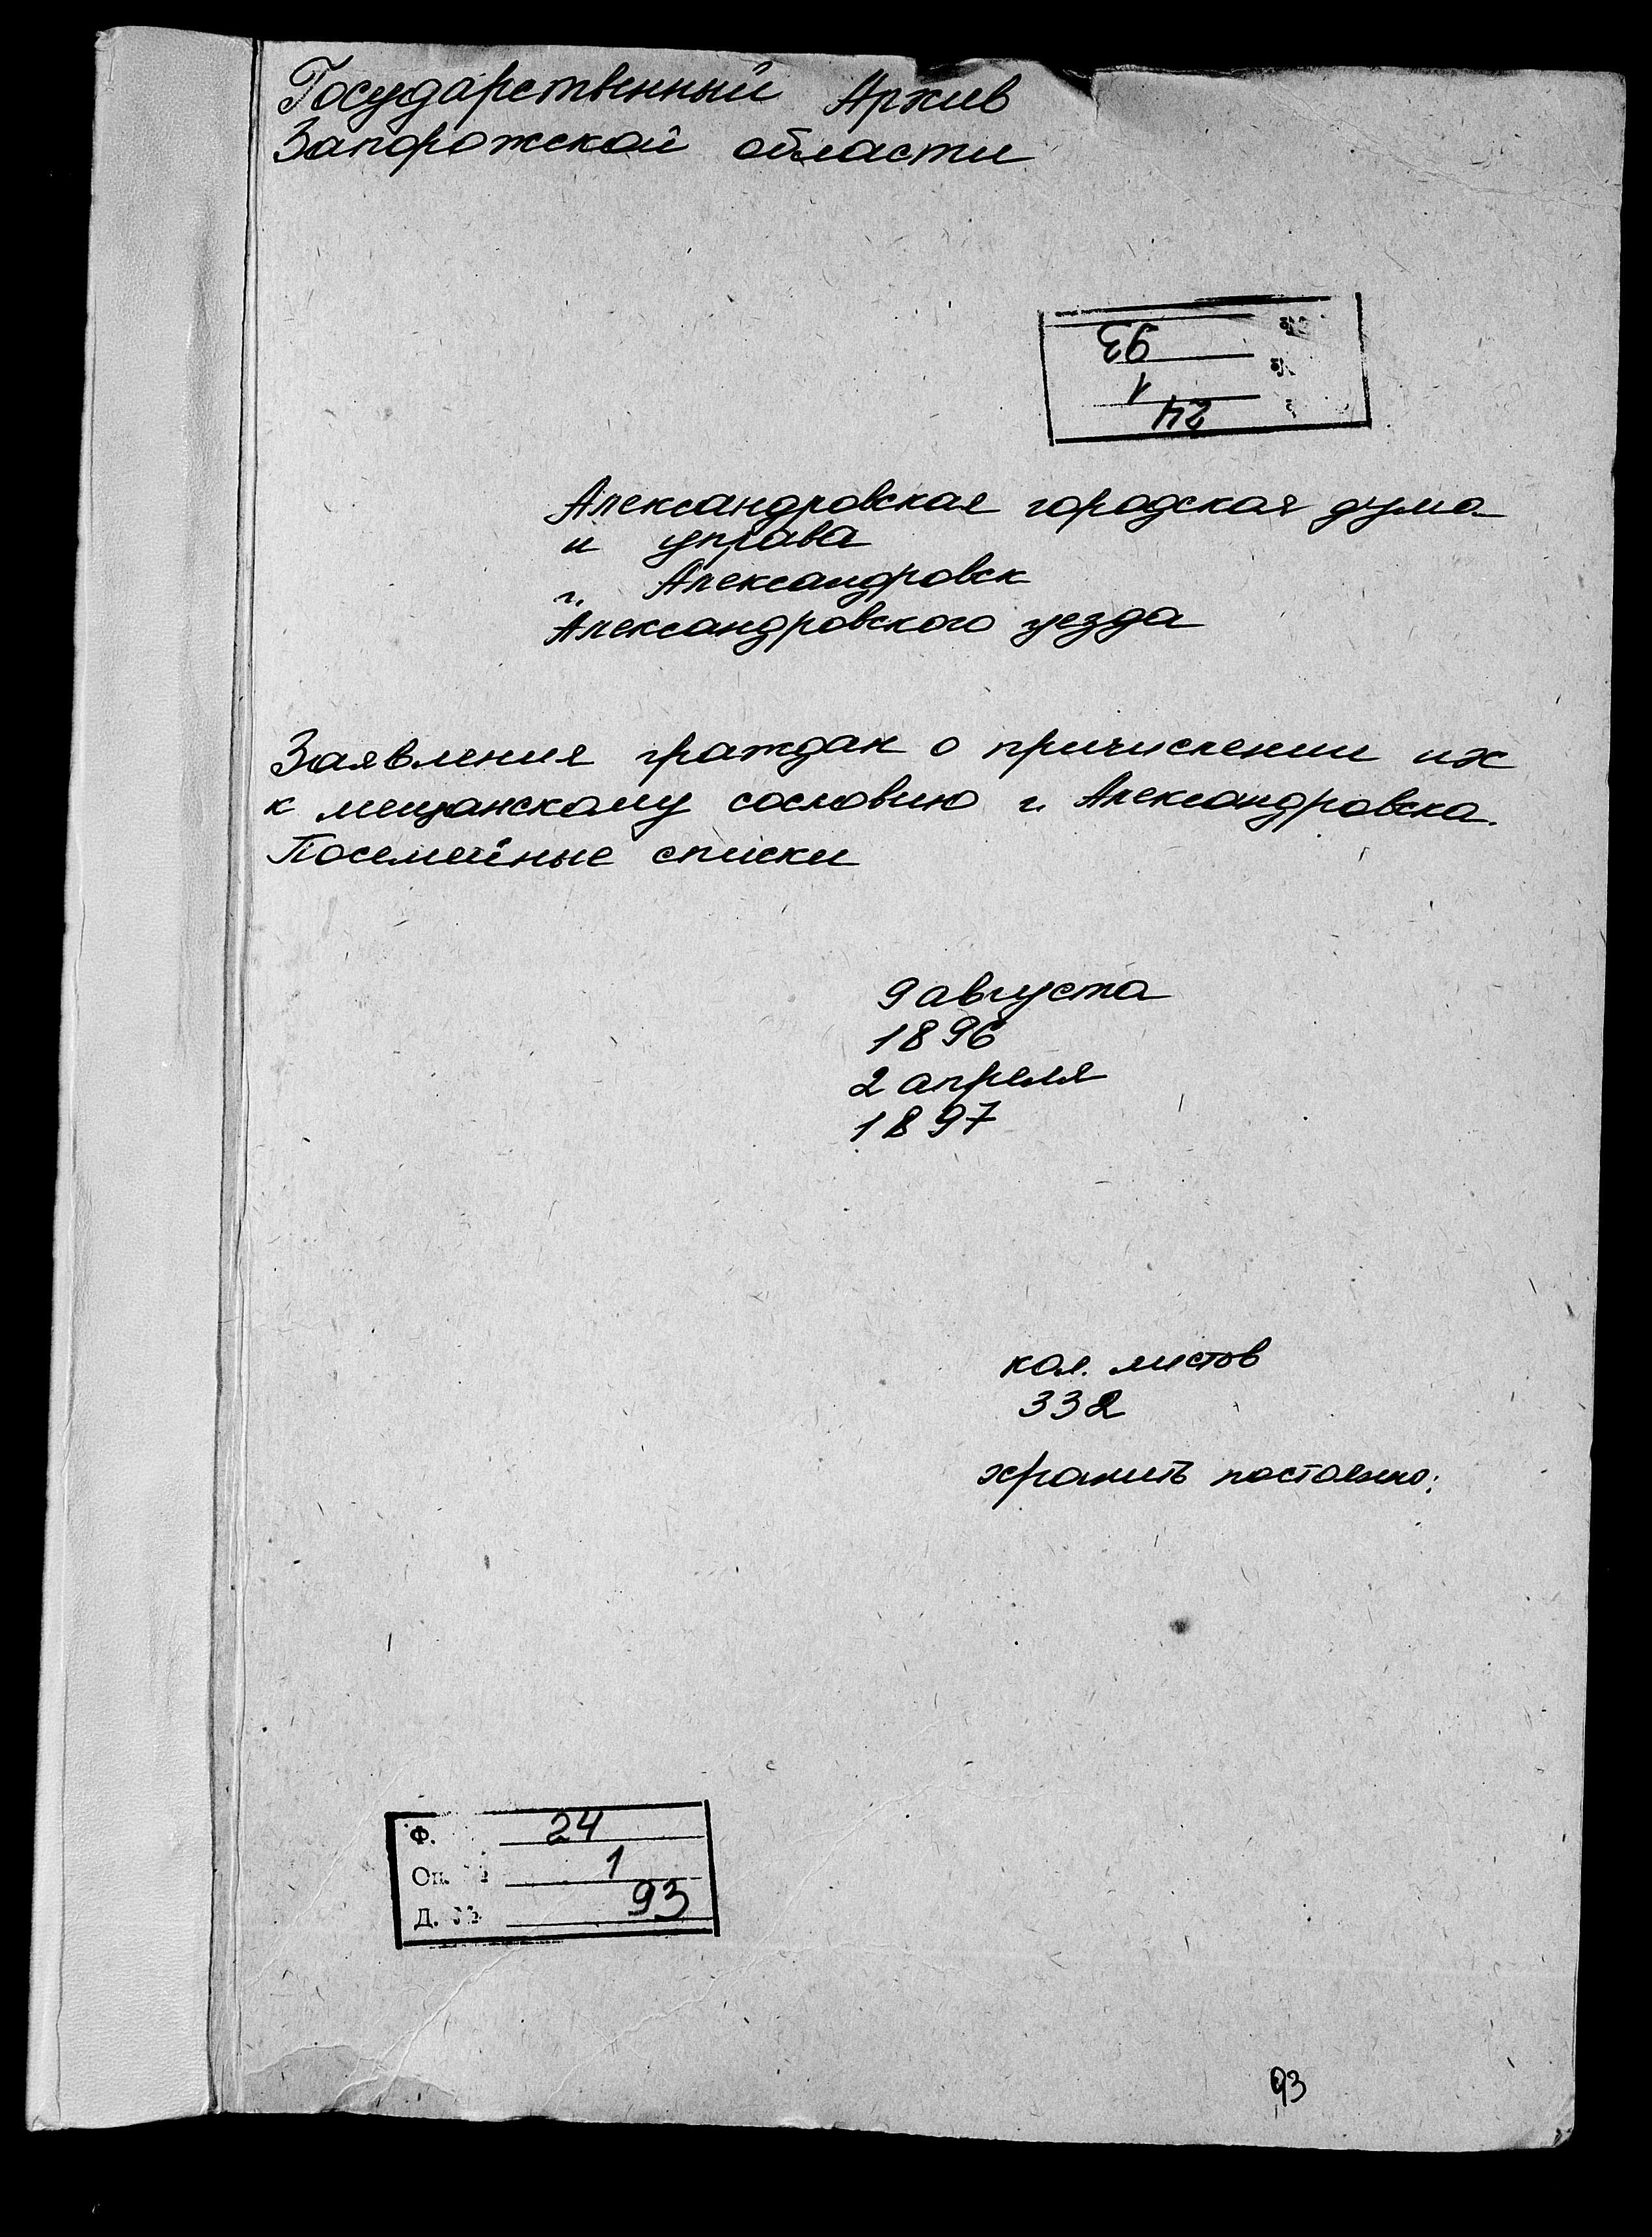 Государственный Архив
Запорожской области
93
1
24
Александровская городская дума
и управа
г. Александровск
Александровского уезда
Заявления граждан о причислении их
к мещанскому сословию г. Александровска.
Посемейные списки
9 августа
1896
2 апреля
1897
кол. листов
332
хранить постоянно.
Ф. 24
Оп. № 1
Д. № 93
93